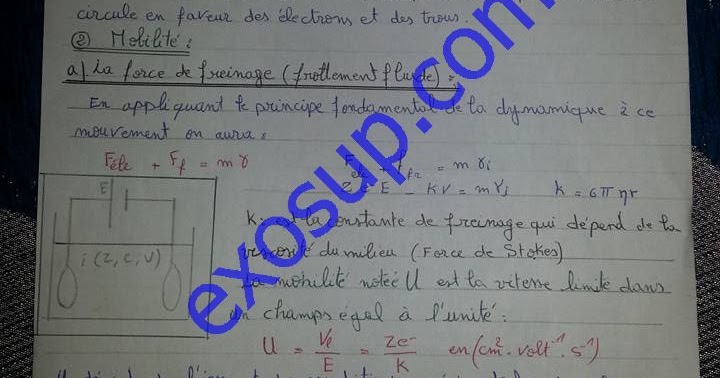 circule en faveur des électrons et des trous.
② Mobilité :
a) La force de freinage (frottement fluide) :
En appliquant le principe fondamental de la dynamique à ce
mouvement on aura :
Féle + Ff = m γ
= m γi
E - KV = mγi k = 6π ηr
E
i (Z, C, U)
K: est la constante de freinage qui dépend de la
viscosité du milieu (Force de Stokes)
La mobilité notée U est la vitesse limite dans
un champs égal à l'unité :
U = Vl/E = Ze-/K en (cm². volt⁻¹. s⁻¹)
exosup.com